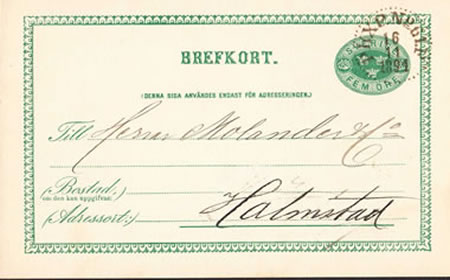 BREFKORT.
SVERIGE
FEM ÖRE
16
11
1894
(DENNA SIDA ANVÄNDES ENDAST FÖR ADRESSERINGEN.)
Till Herrar Molander & Co
(Bostad:)
om den kan uppgifvas:
(Adressort:) Halmstad